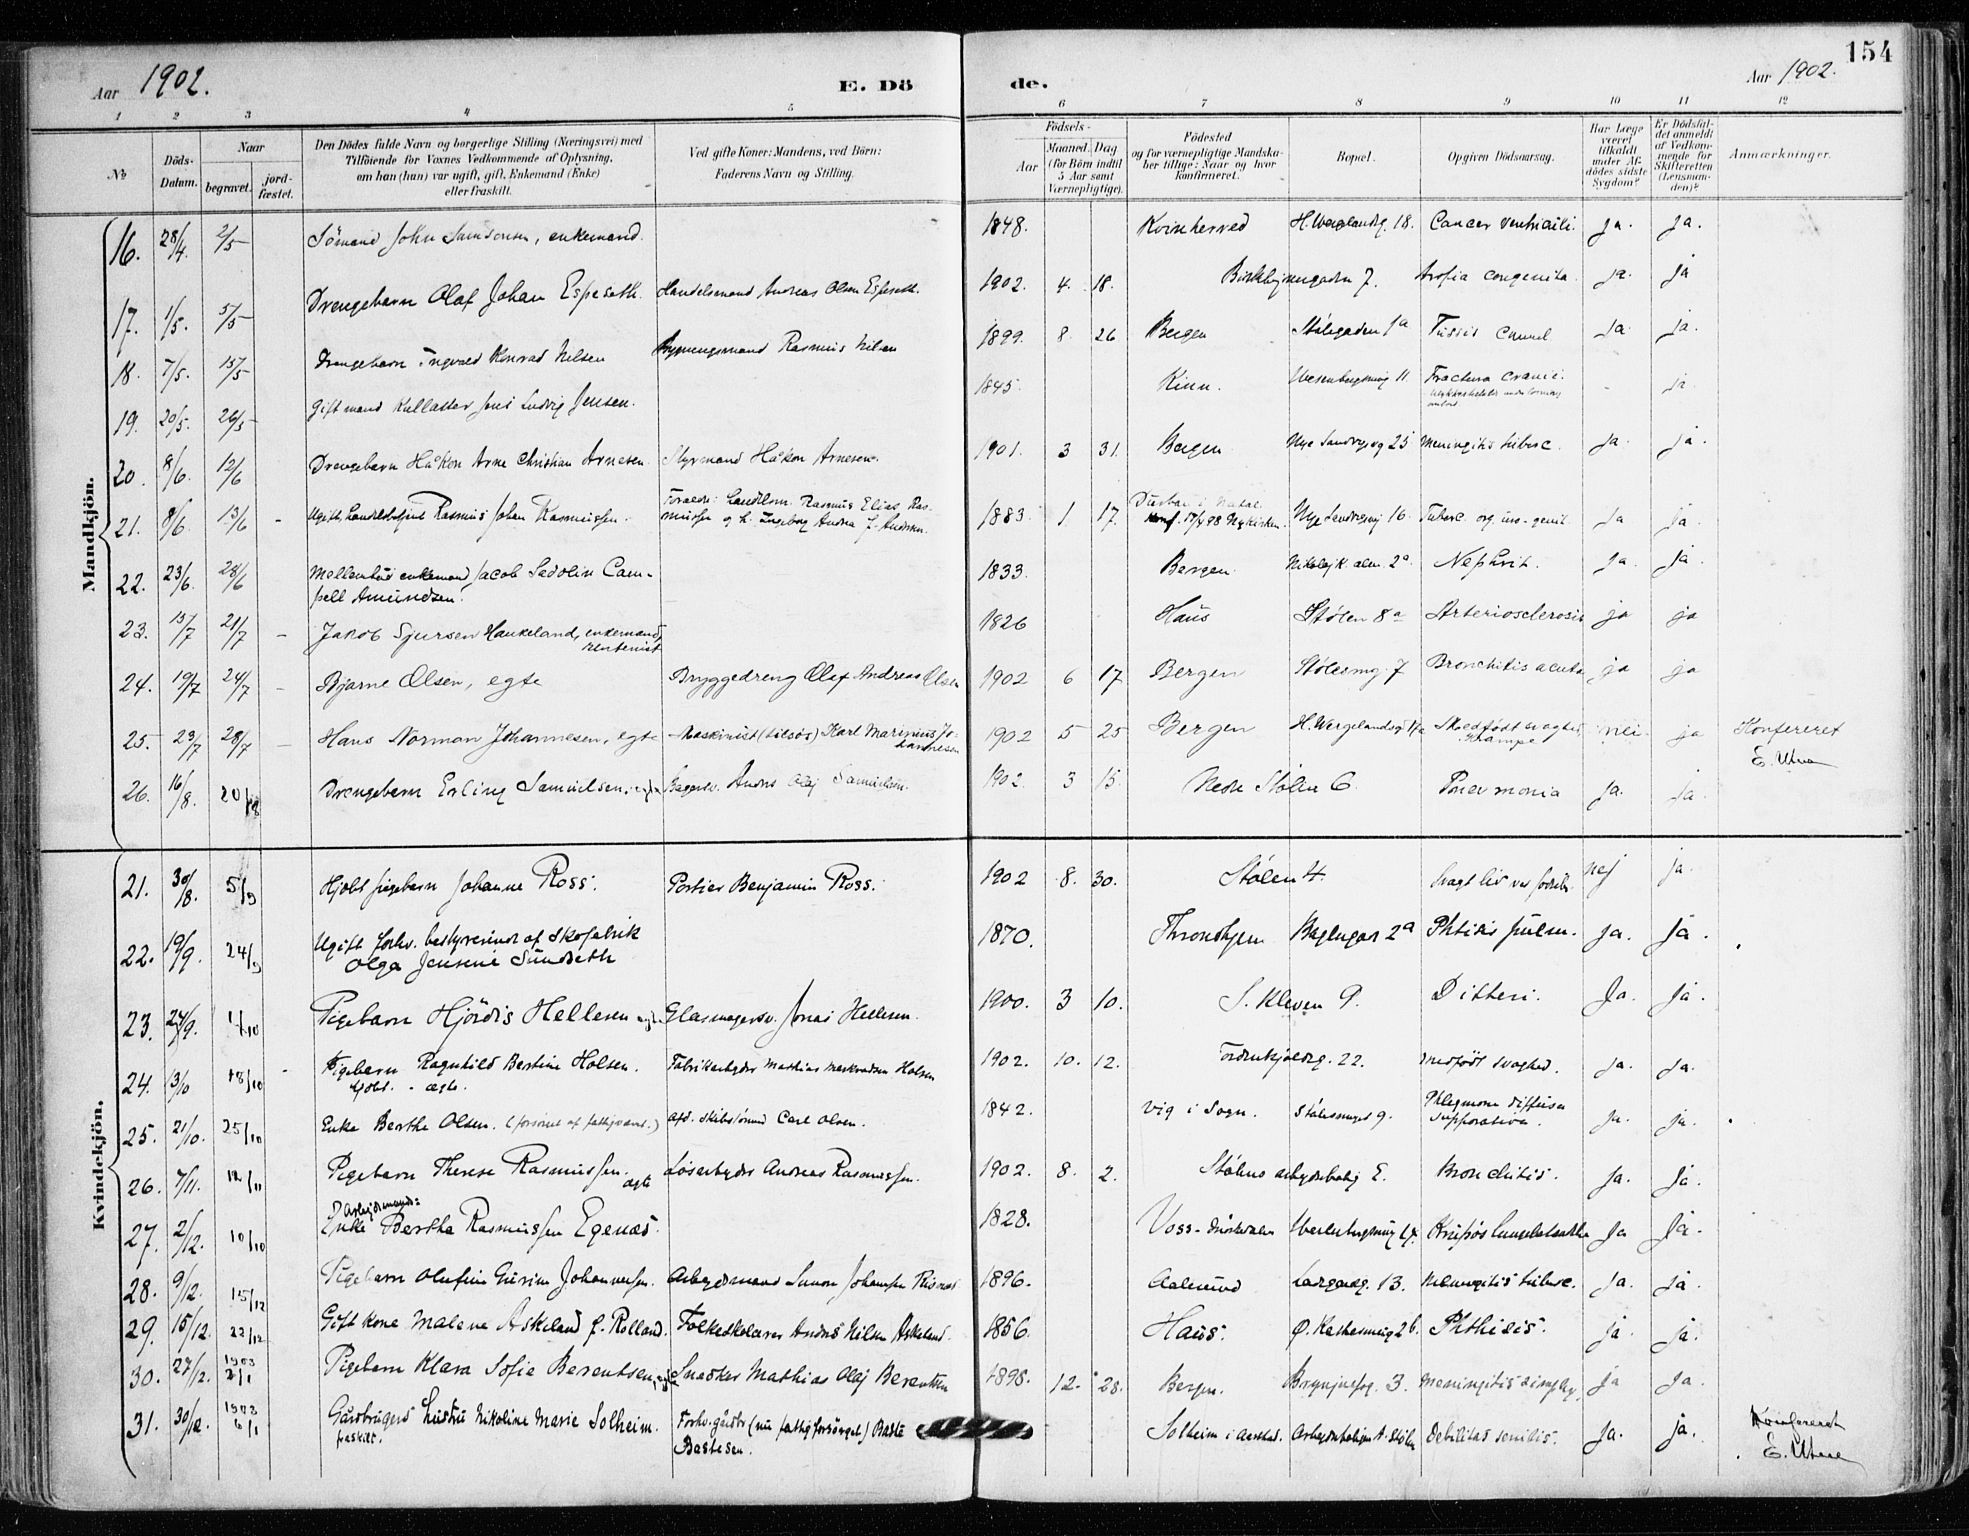 154
Aar 1902.
E. Dö
de.
Aar 1902.
1 2 3 4 5 6 7 8 9 10 11 12
No
Döds-Datum.
Naar
begravet.
jord-fæstet.
Den Dödes fulde Navn og borgerlige Stilling (Næringsvei) med
Tilföiende for Voxnes Vedkommende af Oplysning,
om han (hun) var ugift, gift, Enkemand (Enke)
eller fraskilt.
Ved gifte Koner: Mandens, ved Börn:
Faderens Navn og Stilling.
Födsels-
Aar
Maaned. Dag
(for Börn indtil 5 Aar samt Værnepligtige).
Födested
og for værnepligtige Mandska-
ber tillige: Naar og hvor
konfirmeret.
Bopæl.
Opgiven Dödsaarsag.
Har Læge været tilkaldt under Af-dödes sidste Sygdom?
Er Dödsfal-det anmeldt af Vedkom-mende for Skifteretten (Lensman-den)?
Anmærkninger.
Mandkjön.
16. 28/4 2/5 Sömand John Samsonsen, enkemand. 1848. Kvinherred H. Wergelandsg. 18. Cancer ventriculi. ja. ja.
17. 1/5. 5/5 Drengebarn Olaf Johan Espeseth. Handelsmand Andreas Olsen Espeseth. 1902. 4. 18. 7. Atrofia congenita. ja. ja
18. 7/5. 13/5 Drengebarn Ingvald Konrad Nilsen Rasmus Nilsen 1899. 8. 26 Bergen Stölegaden 1a Tussis ja. ja.
19. 20/5. 26/5 Gift mand Jens Ludvig Jensen. 1845. Kinn. Wesenbergsmug 11 Fractura cranii. - ja
20. 8/6. 12/6 Drengebarn Håkon Arne Christian Arnesen. Styrmand Håkon Arnesen. 1901. 3 31. Bergen Nye Sandvigsvej 25 Meningitis tuberc. ja. ja.
21. 8/6 13/6 - Ugift Rasmus Johan Rasmussen. Forældre: Rasmus Elias Ras-
mussen og h. Ingeborg Andrea f. Andersen. 1883. 1. 17. Durban i Natal. Konf. 17/4 98 Nykirken. Nye Sandvigsvej 16. Tuberc. org. uro-genit. Ja ja.
22. 23/6. 28/6 enkemand Jacob Sedolin Cam-
pell Amundsen. 1833. Bergen. Nikolajk. alm. 2a. Nephrit. ja. ja.
23. 15/7 21/7 - Jakob Sjursen Haukeland, enkemand,
rentenist 1826 Haus Stölen 8a Arteriosclerosis ja ja
24. 19/7 24/7 - Bjarne Olsen, egte Bryggedreng Olaf Andreas Olsen 1902 6 17 Bergen Stölesmg. 7 Bronchitis acuta ja ja
25. 23/7 28/7 - Hans Norman Johannesen, egte Maskinist (tilsös) Karl Marinius Jo-
hannesen 1902 5 25 Bergen H. Wergelandsg. Medfödt svaghed,
Krampe nei ja Konfereret
E. Utne
26. 16/8. 20/8 Drengebarn Erling Samuelsen, egte Bagersv. Anders Olaj Samuelsen. 1902. 3 15. Nedre Stölen 6. Pneumonia ja. ja.
Kvindekjön.
21. 30/8. 5/9 Hjdbt. pigebarn Johanne Ross. Portier Benjamin Ross. 1902 8. 30. Stölen 4. Svagt liv ved födselen. nej ja.
22. 19/9. 24/9 Ugift forhv. bestyrerinde af Skofabrik
Olga Jensine Sundseth 1870. Throndhjem Baglengar 2a Phtisis pulm. ja. ja.
23. 24/9. 1/10 Pigebarn Hjördis Hellesen egte Glasmagersv. Jonas Hellesen. 1900. 3 10. S. Kleven 9. Difteri. Ja. ja.
24. 13/10 18/10 - Pigebarn Ragnhild Bertine Holsen.
hjdbt. - ægte. Fabrikarbejder Mathias Holsen 1902. 10. 12. 22. medfödt svaghed. ja. ja.
25. 21/10. 25/10 Enke Berthe Olsen. (forsörget af fattigvæs.) afd. Skibstömmd. Carl Olsen. 1842. Vig i Sogn. Stölesmuget 9. Phlegmone diffusa
supporativa. ja. ja.
26. 7/11. 12/11 Pigebarn Therese Rasmussen.
ægte Lösarbejder Andreas Rasmussen. 1902. 8. 2. Stölens arbejderbolig E. Bronchitis. ja. ja.
27. 2/12. 10/10 Arbejdsmands-
Enke Bertha Rasmussen Egenæs. 1828. Voss Wesenbergsmug Krupös Lungebetændelse ja ja.
28. 9/12. 15/12 Pigebarn Olufine Johannesen. Arbejdsmand Simon Johansen 1896. Aalesund Ladegaardsg. 13. Meningitis tuberc. ja. ja.
29. 15/12. 22/12 Gift kone Malene Askeland f. Rolland. Folkeskolelærer Anders Nilsen Askeland. 1856. Haus. Ö. 26. Phthisis. ja. ja.
30. 27/12. 1903 2/1 Pigebarn Klara Sofie Berentsen, egte Snedker Mathias Olaj Berentsen 1898. 12. 28. Bergen. Brynjulfsg. 3. Meningitis simplex. ja ja.
31. 30/12. 1903 6/1 Gårdbrugers hustru Nikoline Marie Solheim.
fraskilt. Forhv. gårdbr. (nu fattigforsörget) Baste
Bastesen. Solheim i Aarstad. Arbejderboligen A. Stölen Debilitas senilis. ja. ja. Konfereret
E. Utne